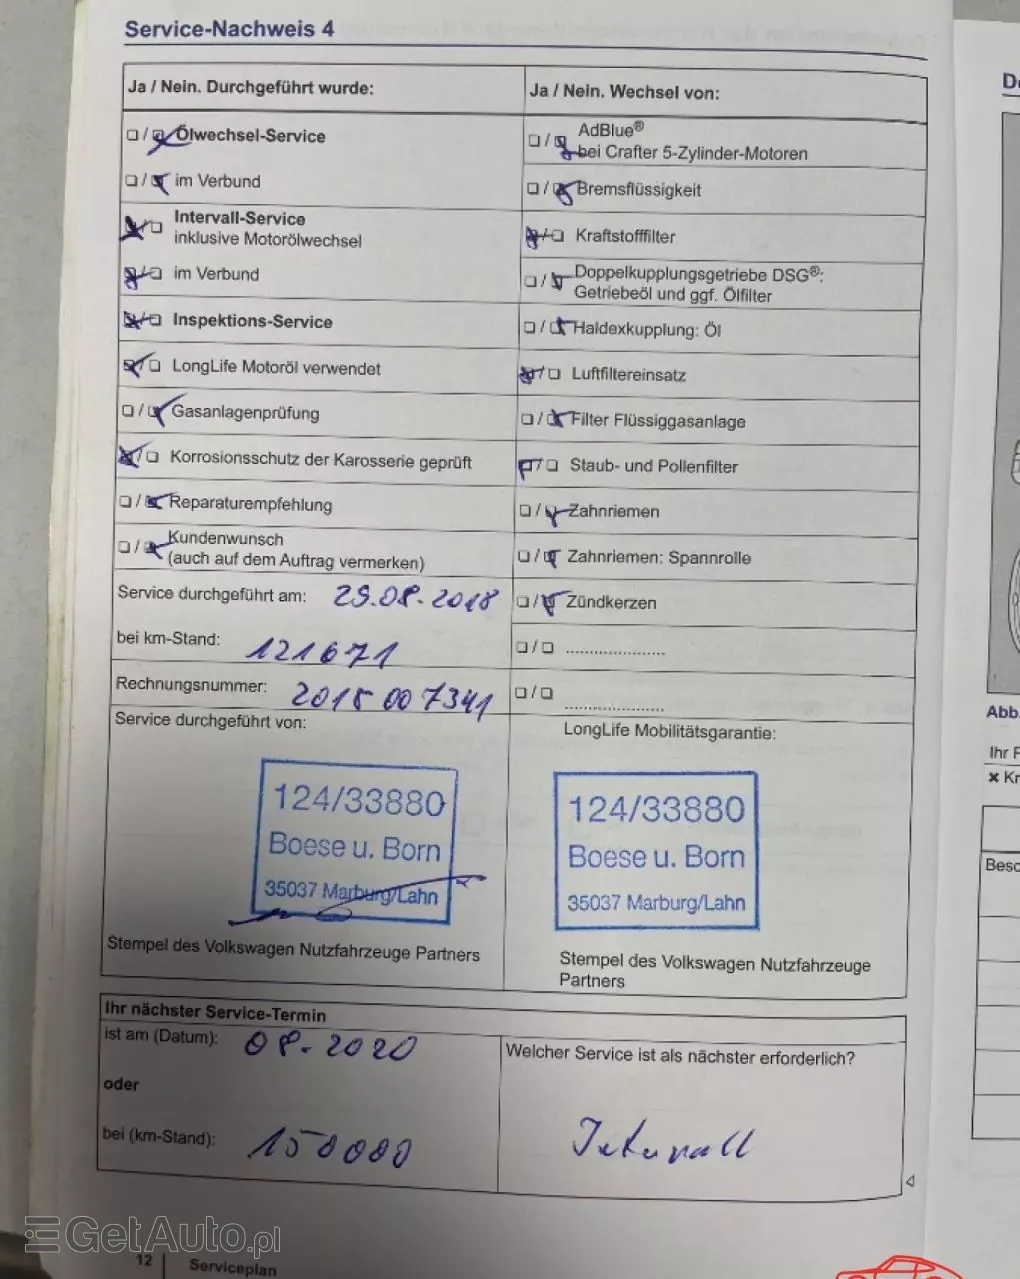 Service-Nachweis 4
Ja / Nein. Durchgeführt wurde:
Ölwechsel-Service
im Verbund
Intervall-Service
inklusive Motorölwechsel
im Verbund
Inspektions-Service
LongLife Motoröl verwendet
Gasanlagenprüfung
Korrosionsschutz der Karosserie geprüft
Reparaturempfehlung
Kundenwunsch
(auch auf dem Auftrag vermerken)
Service durchgeführt am: 29.08.2018
bei km-Stand: 121671
Rechnungsnummer: 2018007341
Service durchgeführt von:
124/33880
Boese u. Born
35037 Marburg/Lahn
Stempel des Volkswagen Nutzfahrzeuge Partners
Ja / Nein. Wechsel von:
AdBlue®
bei Crafter 5-Zylinder-Motoren
Bremsflüssigkeit
Kraftstofffilter
Doppelkupplungsgetriebe DSG®:
Getriebeöl und ggf. Ölfilter
Haldexkupplung: Öl
Luftfiltereinsatz
Filter Flüssiggasanlage
Staub- und Pollenfilter
Zahnriemen
Zahnriemen: Spannrolle
Zündkerzen
LongLife Mobilitätsgarantie:
124/33880
Boese u. Born
35037 Marburg/Lahn
Stempel des Volkswagen Nutzfahrzeuge
Partners
Ihr nächster Service-Termin
ist am (Datum): 08.2020
oder
bei (km-Stand): 150000
Welcher Service ist als nächster erforderlich?
Intervall
12
Serviceplan
Abb.
Ihr
Kr
Besc
GetAuto.pl